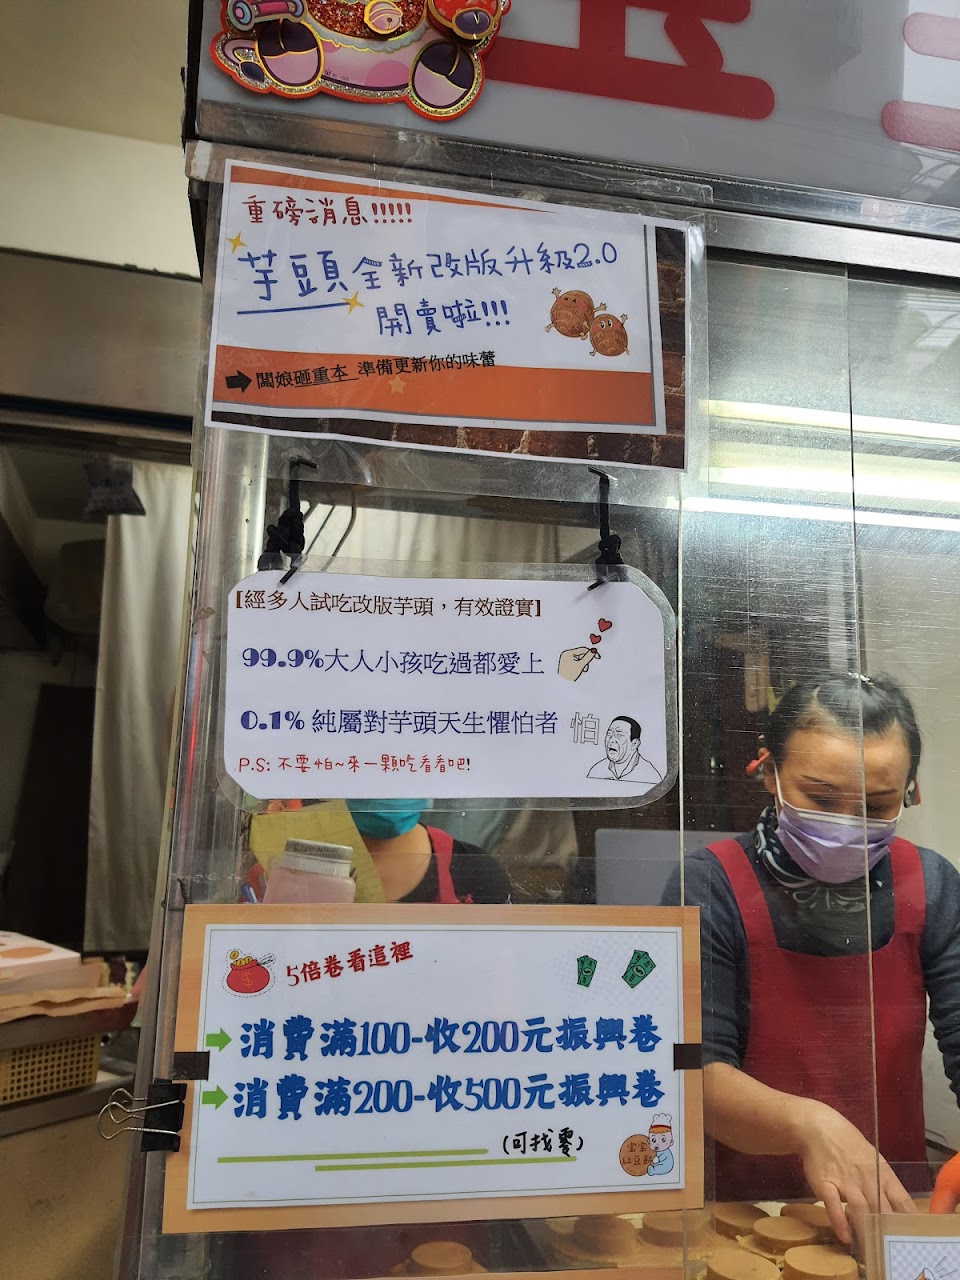 重磅消息!!!!!
芋頭全新改版升級2.0
開賣啦!!!
闆娘砸重本 準備更新你的味蕾
[經多人試吃改版芋頭，有效證實]
99.9%大人小孩吃過都愛上
0.1% 純屬對芋頭天生懼怕者
怕
P.S: 不要怕~來一顆吃看看吧!
5倍卷看這裡
消費滿100-收200元振興卷
消費滿200-收500元振興卷
(可找零)
紅豆餅